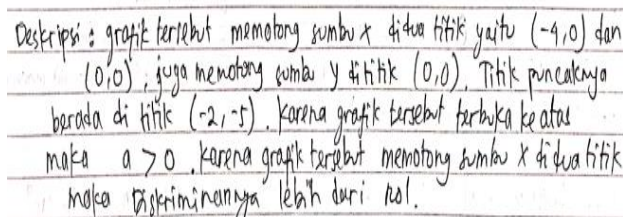 Deskripsi : grafik tersebut memotong sumbu x didua titik yaitu (-4,0) dan
(0,0), juga memotong sumbu y dititik (0,0). Titik puncaknya
berada di titik (-2,-5). Karena grafik tersebut terbuka keatas
maka a > 0. Karena grafik tersebut memotong sumbu x didua titik
maka Diskriminannya lebih dari nol.